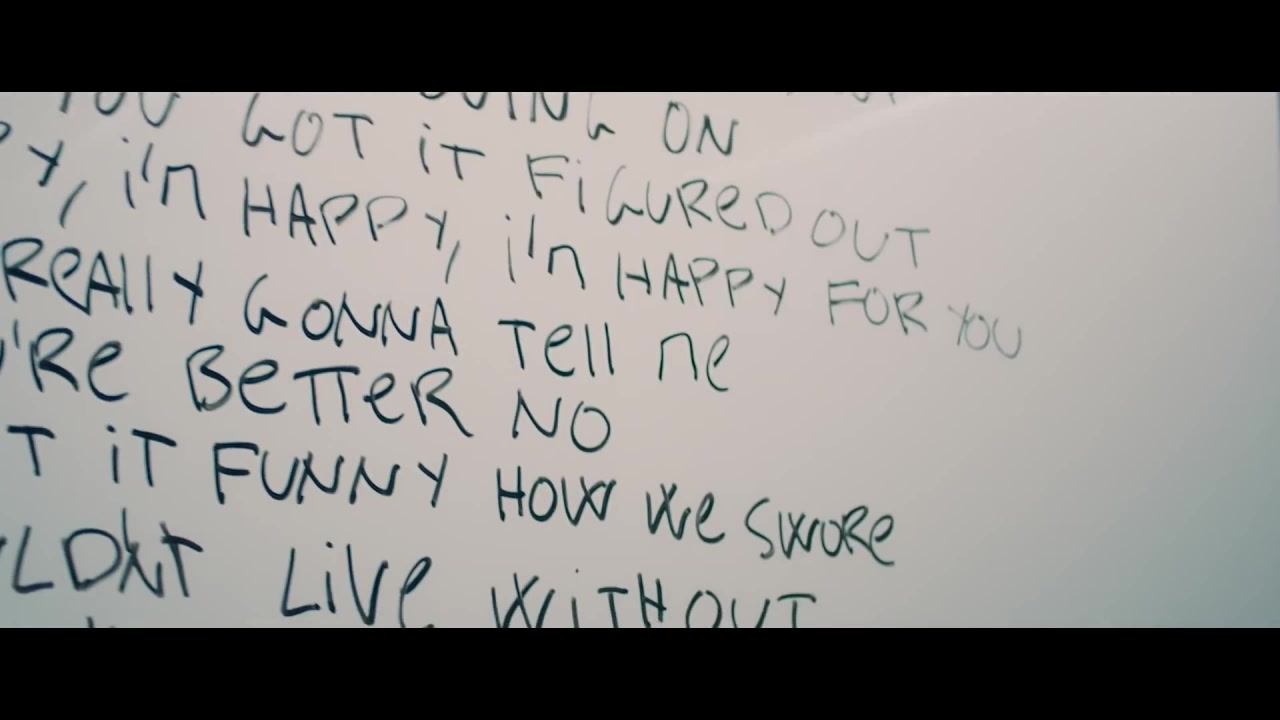 GOING ON
YOU GOT iT FiGUReD OUT
Y, i'm HAPPY, i'm HAPPY FOR YOU
ReAllY GONNA Tell me
'Re BeTTeR NO
T iT FUNNY HOW We SWORe
LDN'T Live WiTHOUT